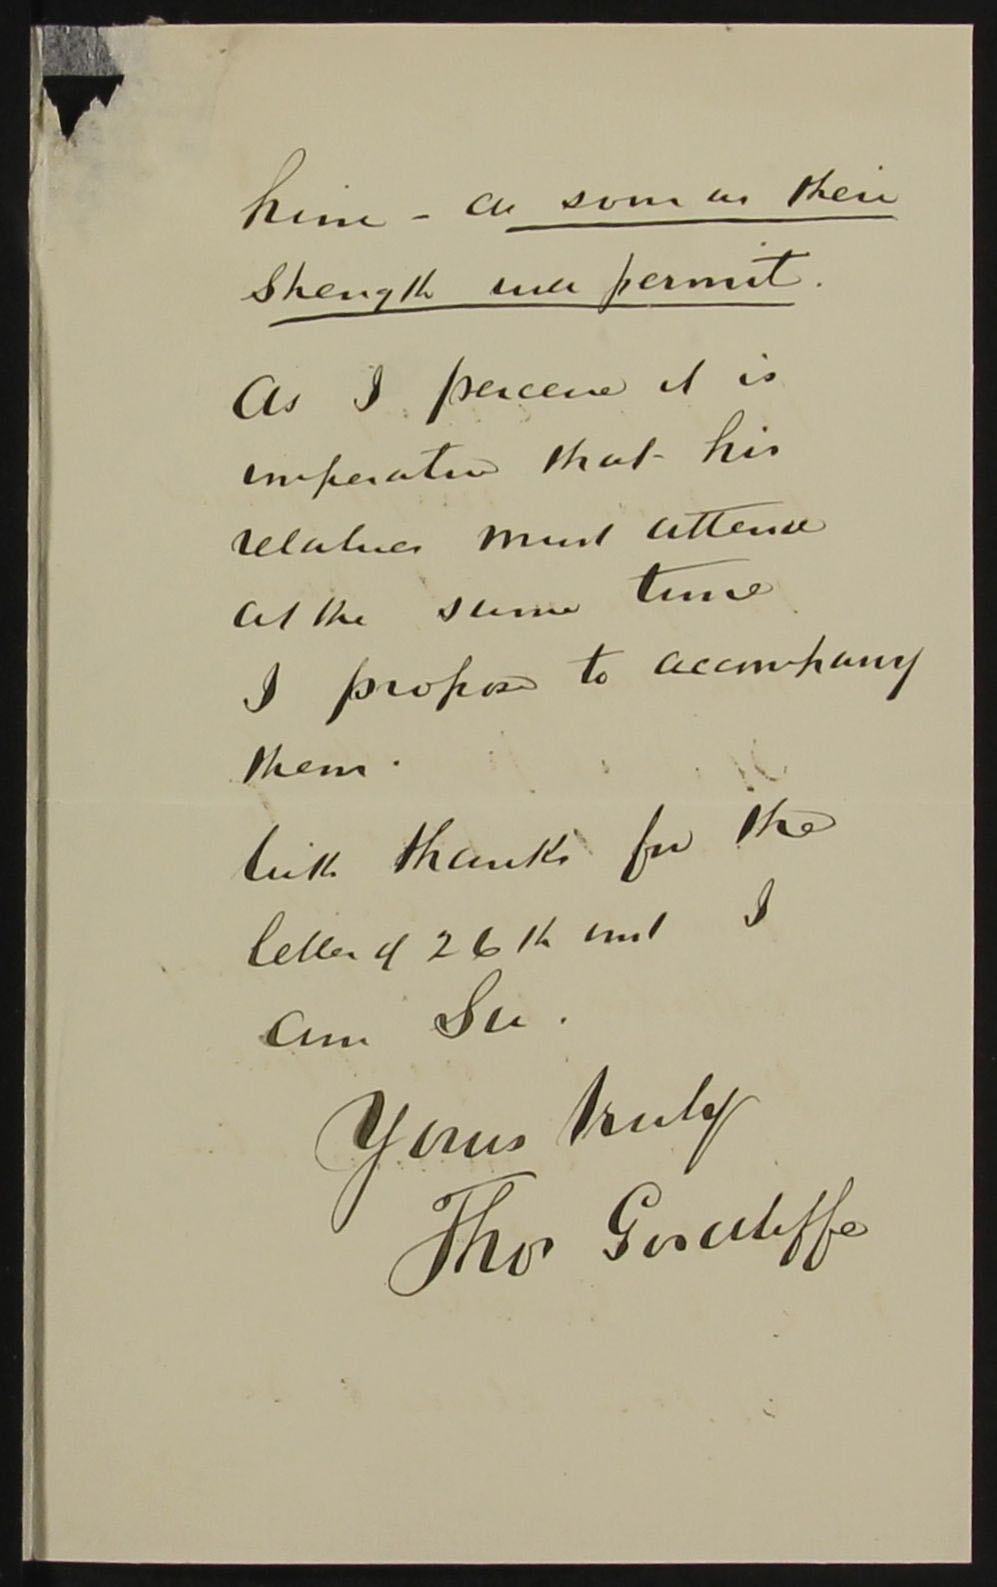 him - as soon as their
strength will permit.
As I perceive it is
imperative that his
relatives must attend
at the same time
I propose to accompany
them.
With thanks for the
letter of 26th inst I
am Sir.
Yours truly
Thos